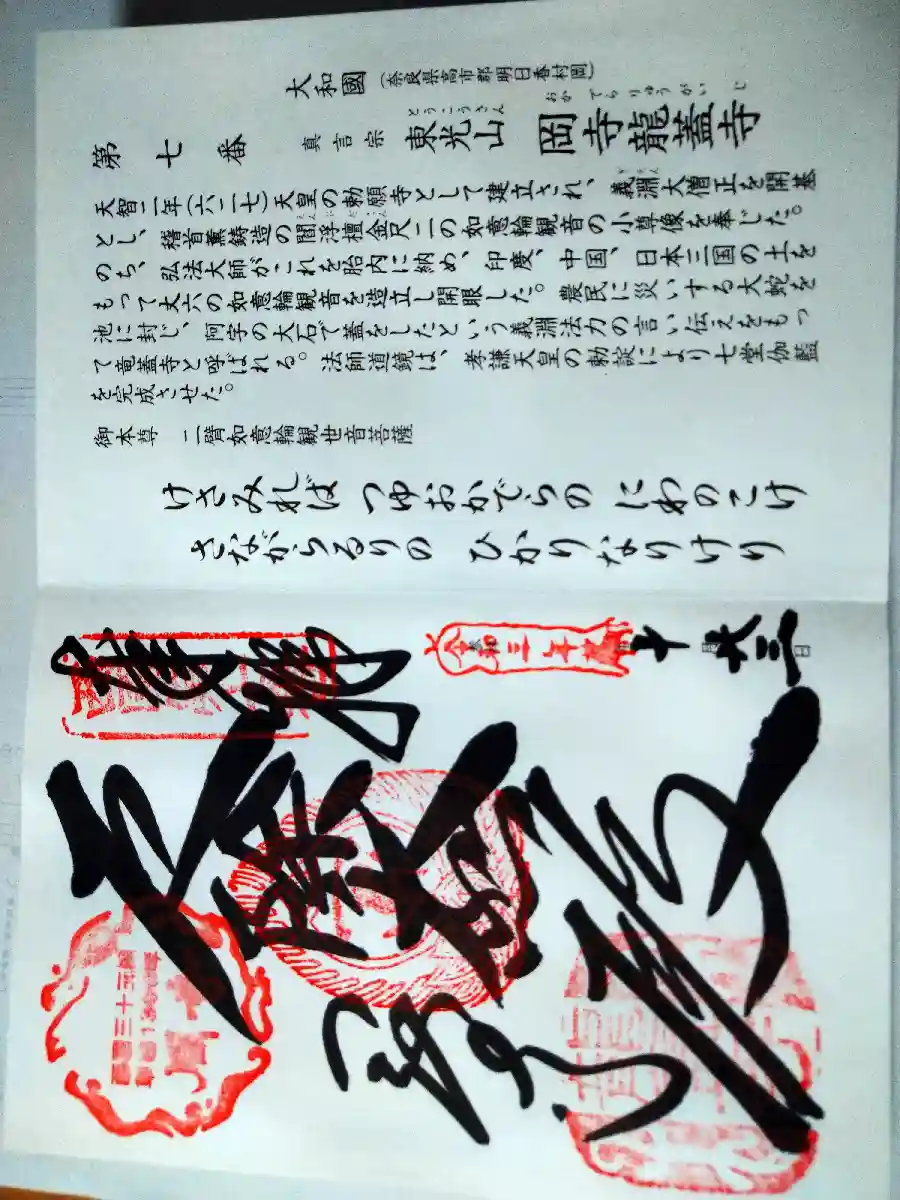 大和國（奈良県高市郡明日香村岡）
第七番 真言宗 東光山 岡寺龍蓋寺
とうこうさん おかでらりゅうがいじ
天智二年（六二七）天皇の勅願寺として建立され、義淵大僧正を開基
とし、稽首薫鋳造の閻浮檀金尺二の如意輪観音の小尊像を奉じた。
のち、弘法大師がこれを胎内に納め、印度、中国、日本三国の土を
もって丈六の如意輪観音を造立し開眼した。農民に災いする大蛇を
池に封じ、阿字の大石で蓋をしたという義淵法力の言い伝えをもっ
て竜蓋寺と呼ばれる。法師道鏡は、孝謙天皇の勅諚により七堂伽藍
を完成させた。
御本尊 二臂如意輪観世音菩薩
けさみれば つゆおかでらの にわのこけ
さながらるりの ひかりなりけり
令和三年
十月三日
奉拝